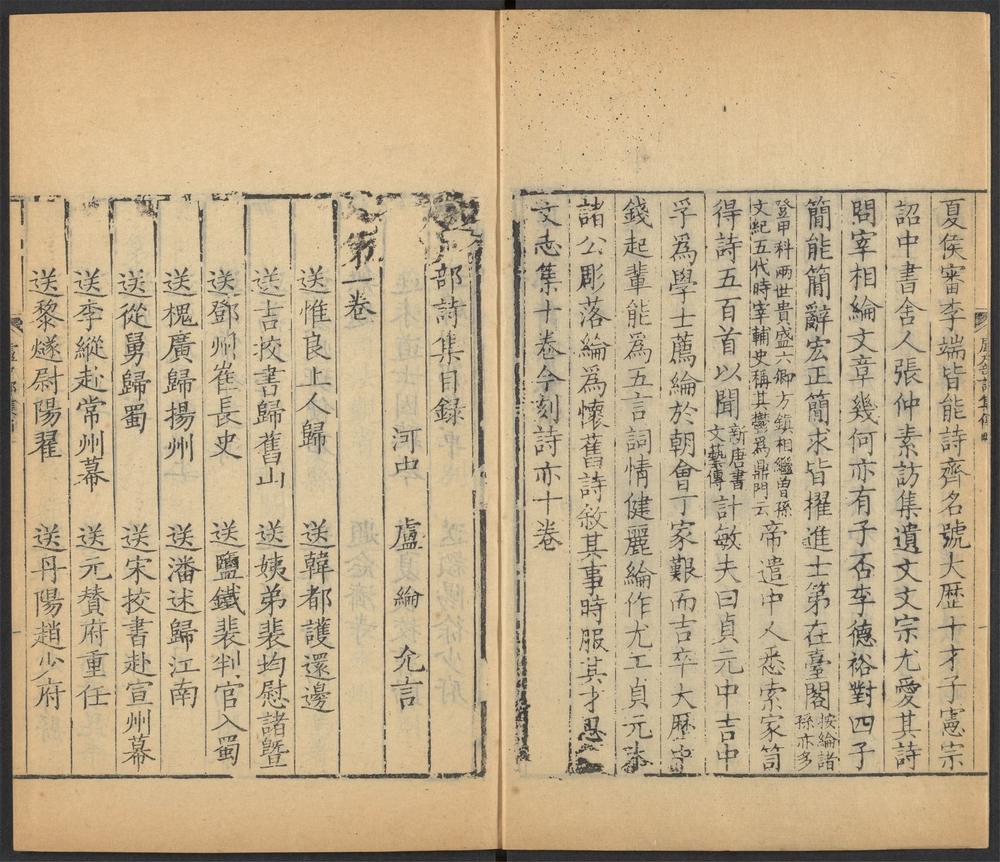 夏侯審李端皆能詩齊名號大歷十才子憲宗
詔中書舍人張仲素訪集遺文文宗尤愛其詩
問宰相綸文章幾何亦有子否李德裕對四子
簡能簡辭宏正簡求皆擢進士第在臺閣按綸諸孫亦多
登甲科兩世貴盛六卿方鎮相繼曾孫文紀五代時宰輔史稱其鬱爲鼎門云帝遣中人悉索家笥
得詩五百首以聞新唐書文藝傳計敏夫曰貞元中吉中
孚爲學士薦綸於朝會丁家艱而吉卒大歷中
錢起輩能爲五言詞情健麗綸作尤工貞元
諸公彫落綸爲懷舊詩敘其事時服其才思
文志集十卷今刻詩亦十卷
部詩集目録
河中 盧綸允言
第一卷
送惟良上人歸 送韓都護還邊
送吉挍書歸舊山 送姨弟裴均慰諸暨
送鄧州崔長史 送鹽鐵裴判官入蜀
送槐廣歸揚州 送潘述歸江南
送從舅歸蜀 送宋挍書赴宣州幕
送李縱赴常州幕 送元贊府重任
送黎燧尉陽翟 送丹陽趙少府